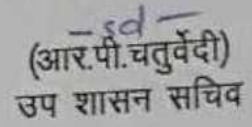 -sd-
(आर.पी.चतुर्वेदी)
उप शासन सचिव